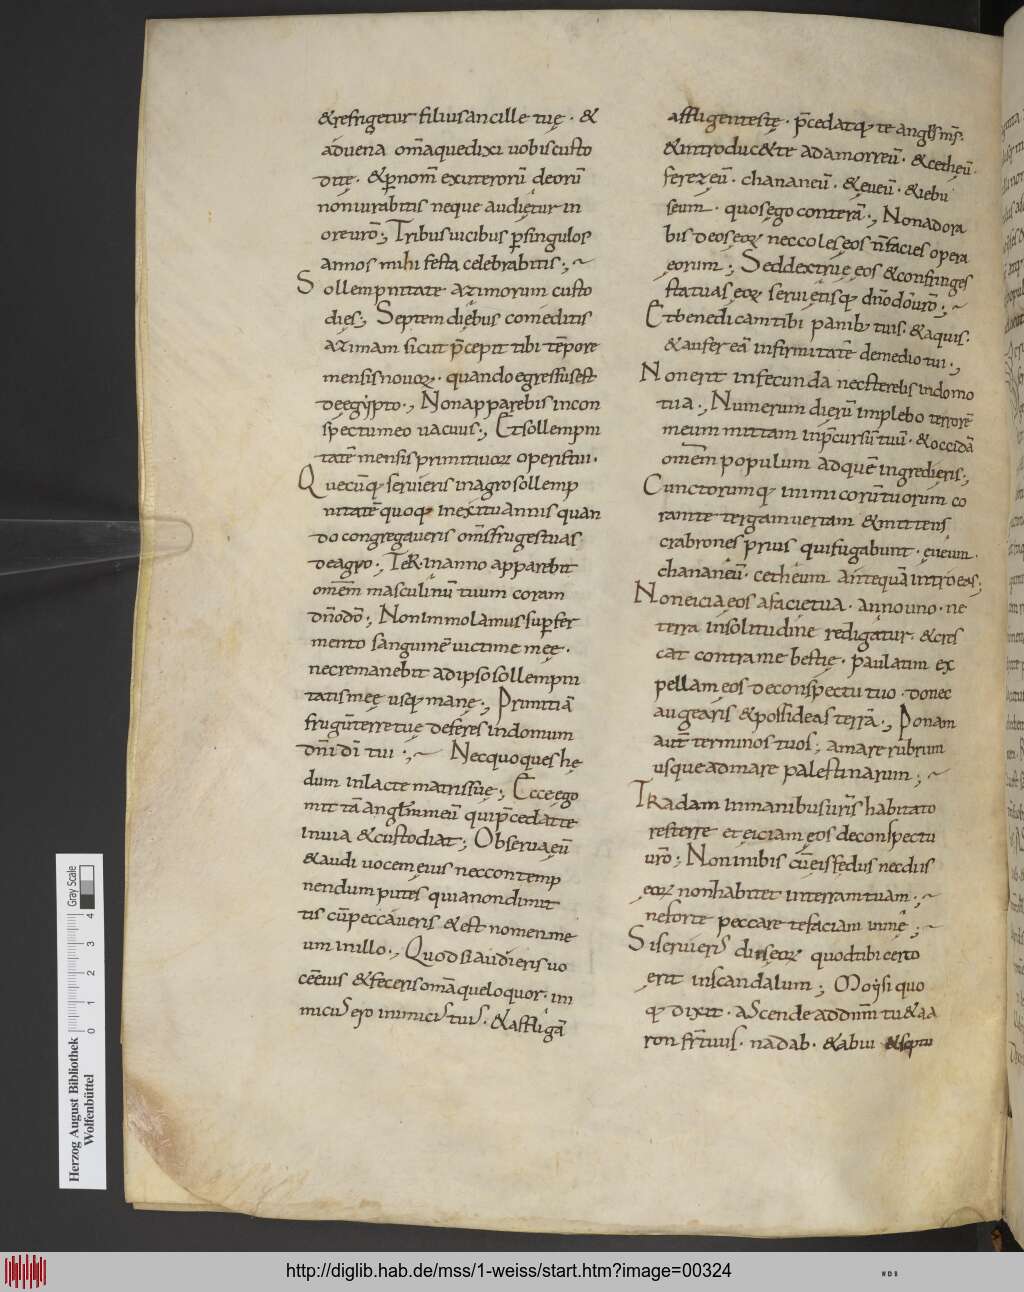 &refrigetur filiusancille tuę · &
aduena om̄aquedixi uobiscusto
dite · &ꝑnom̄ exuterorū deorū
noniurabitis neque audiętur in
oreurō·, Tribusuicibus ꝑsingulos
annos mihi festa celebrabitis·,~
Sollempnitate azimorum custo
dies·, Septem diebus comeditis
azimam sicut p̄cepit tibi tēpore
mensisnouoꝝ · quandoegressusest
deegypto·, Nonapparebisincon
spectumeo uacuus·, Etsollempni
tatē mensisprimitiuoꝝ operistui·
Quecūqꝫ seruieris inagrosollemp
nitatēquoqꝫ inexituannis quan
do congregaueris om̄sfrugestuas
deagro·, TeR inanno apparebit
omēm masculinū tuum coram
dn̄odō·, Nonimmolamussupꝑfer
mento sanguinē uictime meę ·
necremanebit adipsosollempni
tatismeę usqꝫ mane·, Primitiā
frugūterretuę deferes indomum
dn̄idī tui ·,~ Necquoqueshę
dum inlacte matrissuę·, Ecceego
mittā angl̄mmeū quip̄cedatte
inuia &custodiat·, Obseruaeū
&audi uocem eius neccontemp
nendum putes quianondimit
tis cūpeccaueris &est nomenme
um inillo·, Quodsiaudieris uo
cēeius &feceris om̄aqueloquor· ini
micus ero inimicis tuis · &affligā
affligenteste · p̄cedatqꝫ te angl̄sm̄s·
&introduc&te adamorreū · &cetheū·
ferezeū · chananeū · &eueū · &iebu
seum · quosęgo conterā·, Nonadora
bis deoseoꝝ neccoleseos n̄facies opera
eorum·, Seddextrue eos &confringes
statuas eoꝝ seruietisqꝫ dn̄odōurō·,~
Etbenedicamtibi panibꝫ tuis · &aquis·
&aufereā infirmitatē demedio tui·,
Nonerit infecunda necsterelis indomo
tua·, Numerum dierū implebo terrorē
meum mittam inp̄cursūtuū · &occidā
omēm populum adquē ingredieris·,
Cunctorumqꝫ inimicorūtuorum co
ramte tergamuertam &mittens
crabrones prius quifugabunt · eueum·
chananeū · cetheum antequā introeas·,
Noneiciaęos afacietua · announo · ne
terra insolitudine redigatur · &cres
cat contrame bestię · paulatim ex
pellam eos deconspectu tuo · donec
augearis &possideas terrā·, Ponam
autē terminos tuos·, amare rubrum
usqueadmare palestinarum·,~
TRadam inmanibusur̄is habitato
resterre eteiciam eos deconspectu
urō·, Noninibis cūeisfedus necdiis
eoꝝ non habitet interramtuam·,~
neforte peccare tefaciam inmę·,~
Siseruieris diiseoꝝ quodtibi certo
erit inscandalum·, Moysi quo
qꝫ dixit · ascende addn̄m tu&aa
ron fr̄tuus · nadab · &abiu &septu
Herzog August Bibliothek
Wolfenbüttel
0 1 2 3 4
Gray Scale
http://diglib.hab.de/mss/1-weiss/start.htm?image=00324